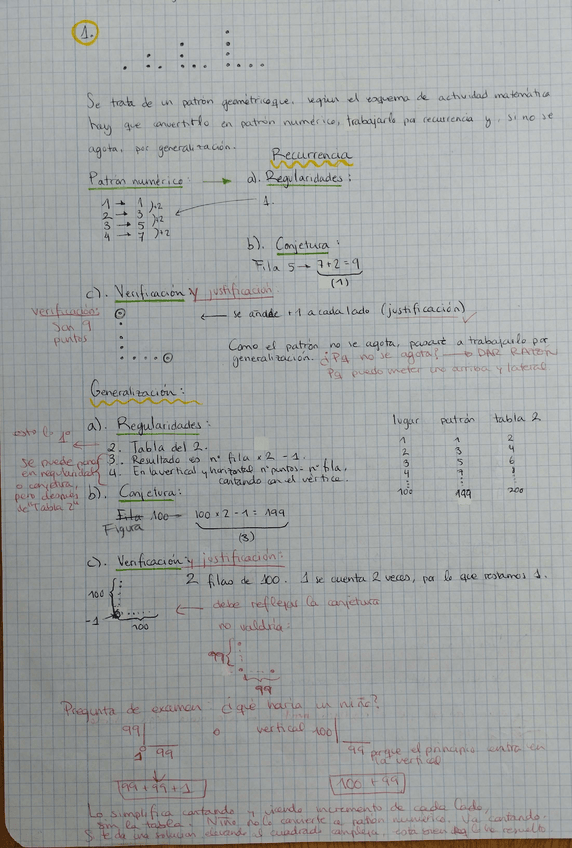 1.
Se trata de un patrón geométrico que, según el esquema de actividad matemática
hay que convertirlo en patrón numérico, trabajarlo por recurrencia y, si no se
agota, por generalización.
Recurrencia
Patrón numérico: → a). Regularidades:
1 → 1
2 → 3
3 → 5
4 → 7
)+2
)+2
)+2
1.
b). Conjetura:
Fila 5 → 7+2=9
(1)
c). Verificación y justificación
verificación:
son 9
puntos
← se añade +1 a cada lado (justificación)
Como el patrón no se agota, pasaré a trabajarlo por
generalización. ¿Pq no se agota? → DAR RAZÓN
Pq puedo meter uno arriba y lateral
Generalización:
a). Regularidades:
esto lo 1º
2. Tabla del 2.
3. Resultado es nº fila x 2 - 1.
4. En la vertical y horizontal nº puntos = nº fila,
contando con el vértice.
se puede poner
en regularidades
o conjetura,
pero después
de "Tabla 2"
lugar patrón tabla 2
1 1 2
2 3 4
3 5 6
4 7 8
100 199 200
b). Conjetura:
Fila 100 = 100 x 2 - 1 = 199
Figura
(3)
c). Verificación y justificación:
2 filas de 100. 1 se cuenta 2 veces, por lo que restamos 1.
100
-1
100
← debe reflejar la conjetura
no valdría:
99
99
Pregunta de examen ¿qué haría un niño?
99
1 99
o vertical 100
99 porque el principio entra en
la vertical
99+99+1
100+99
Lo simplifica contando y viendo incremento de cada lado,
sin la tabla. Niño no lo convierte a patrón numérico. Va contando.